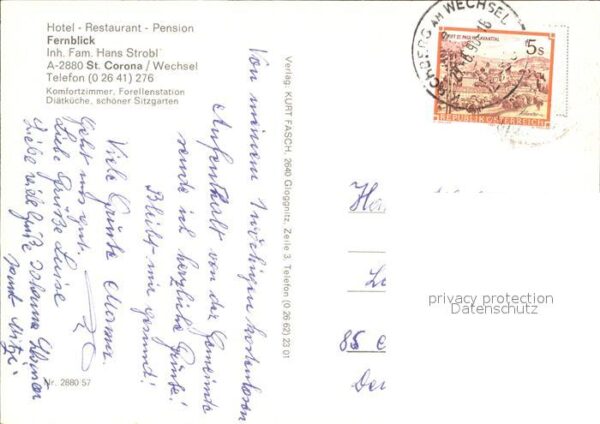 Hotel - Restaurant - Pension
Fernblick
Inh. Fam. Hans Strobl
A-2880 St. Corona / Wechsel
Telefon (0 26 41) 276
Komfortzimmer, Forellenstation
Diätküche, schöner Sitzgarten
Von meinem 1 wöchigen kostenlosen
Aufenthalt von der Gemeinde
sende ich herzliche Grüße!
Bleibt mir gesund!
Viele Grüße
Geht uns gut.
Liebe Grüße Luise
Liebe viele Grüße Johanna
samt Mitzi
Nr. 2880 57
Verlag: KURT FASCH, 2640 Gloggnitz, Zeile 3, Telefon (0 26 62) 23 01
KIRCHBERG AM WECHSEL
STIFT ST. PAUL IM LAVANTTAL
5 S
REPUBLIK ÖSTERREICH
privacy protection
Datenschutz
85